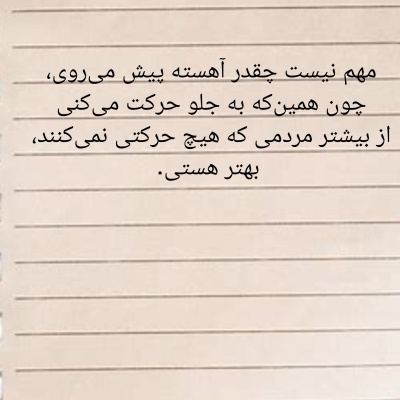 مهم نیست چقدر آهسته پیش می‌روی،
چون همین‌که به جلو حرکت می‌کنی
از بیشتر مردمی که هیچ حرکتی نمی‌کنند،
بهتر هستی.